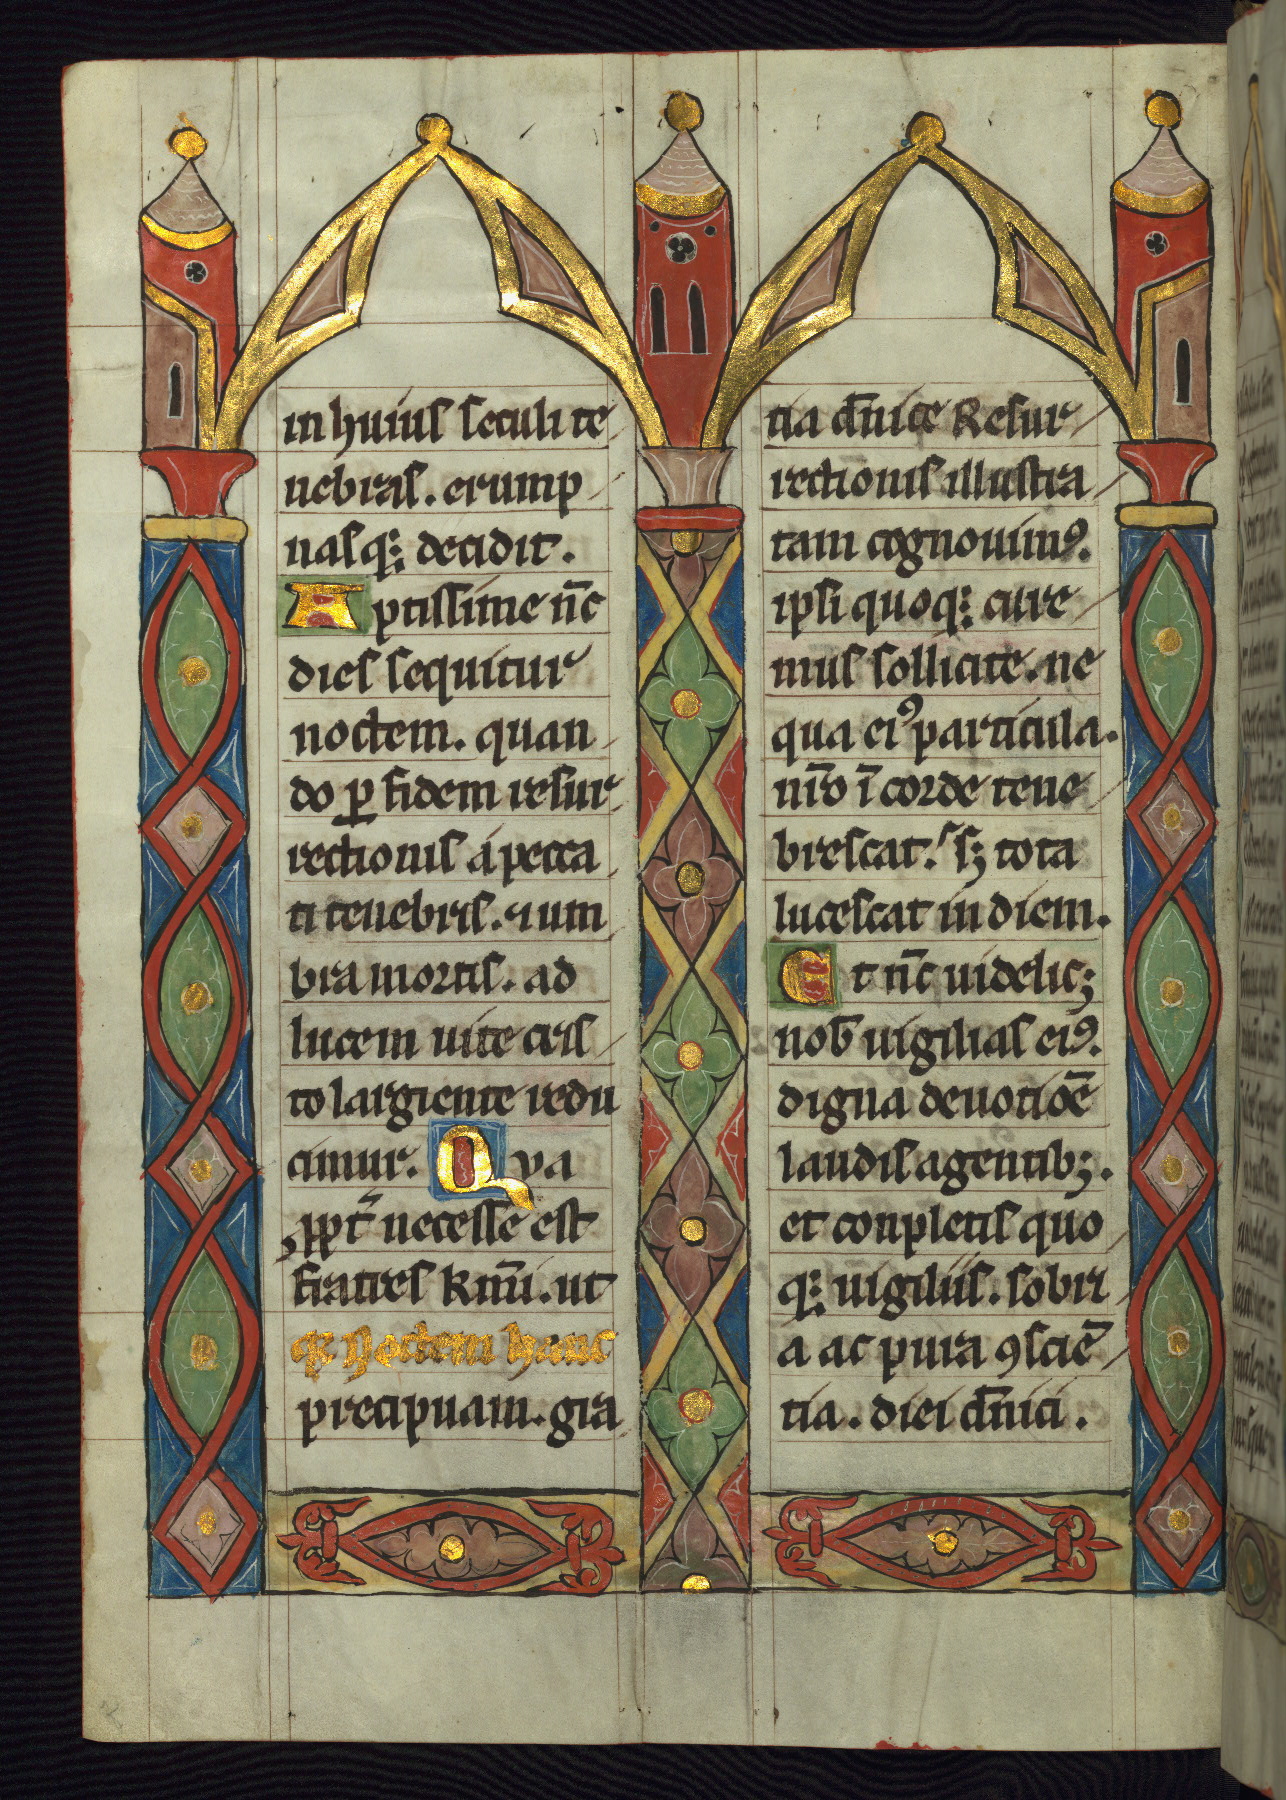 in huius seculi te
nebras. erump
nasq; decidit.
Aptissime nc̄
dies sequitur
noctem. quan
do ꝑ fidem resur
rectionis a pecca
ti tenebris. ⁊ um
bra mortis. ad
lucem uite cris
to largiente redu
cimur. Qva
ꝓpt̄ necesse est
fratres Km̄i. ut
q̇ Noctem hanc
precipuam. gra
tia dn̄ice Resur
rectionis illustra
tam cognouim⁹.
ipsi quoq; cure
mus sollicite. ne
qua ei⁹ particula.
nr̄o ī corde tene
brescat. s; tota
lucescat in diem.
Et nc̄ uidelic;
nob̄ uigilias ei⁹.
digna deuotiōe
laudis agentib;.
et conpletis quo
q; uigiliis. sobri
a ac pura ꝯsciē
tia. diei dn̄ici.